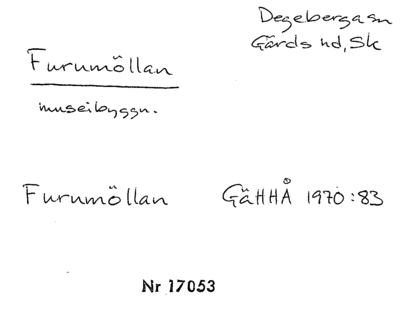 Degeberga sn
Gärds hd, Sk
Furumöllan
museibyggn.
Furumöllan GäHHÅ 1970:83
Nr 17053